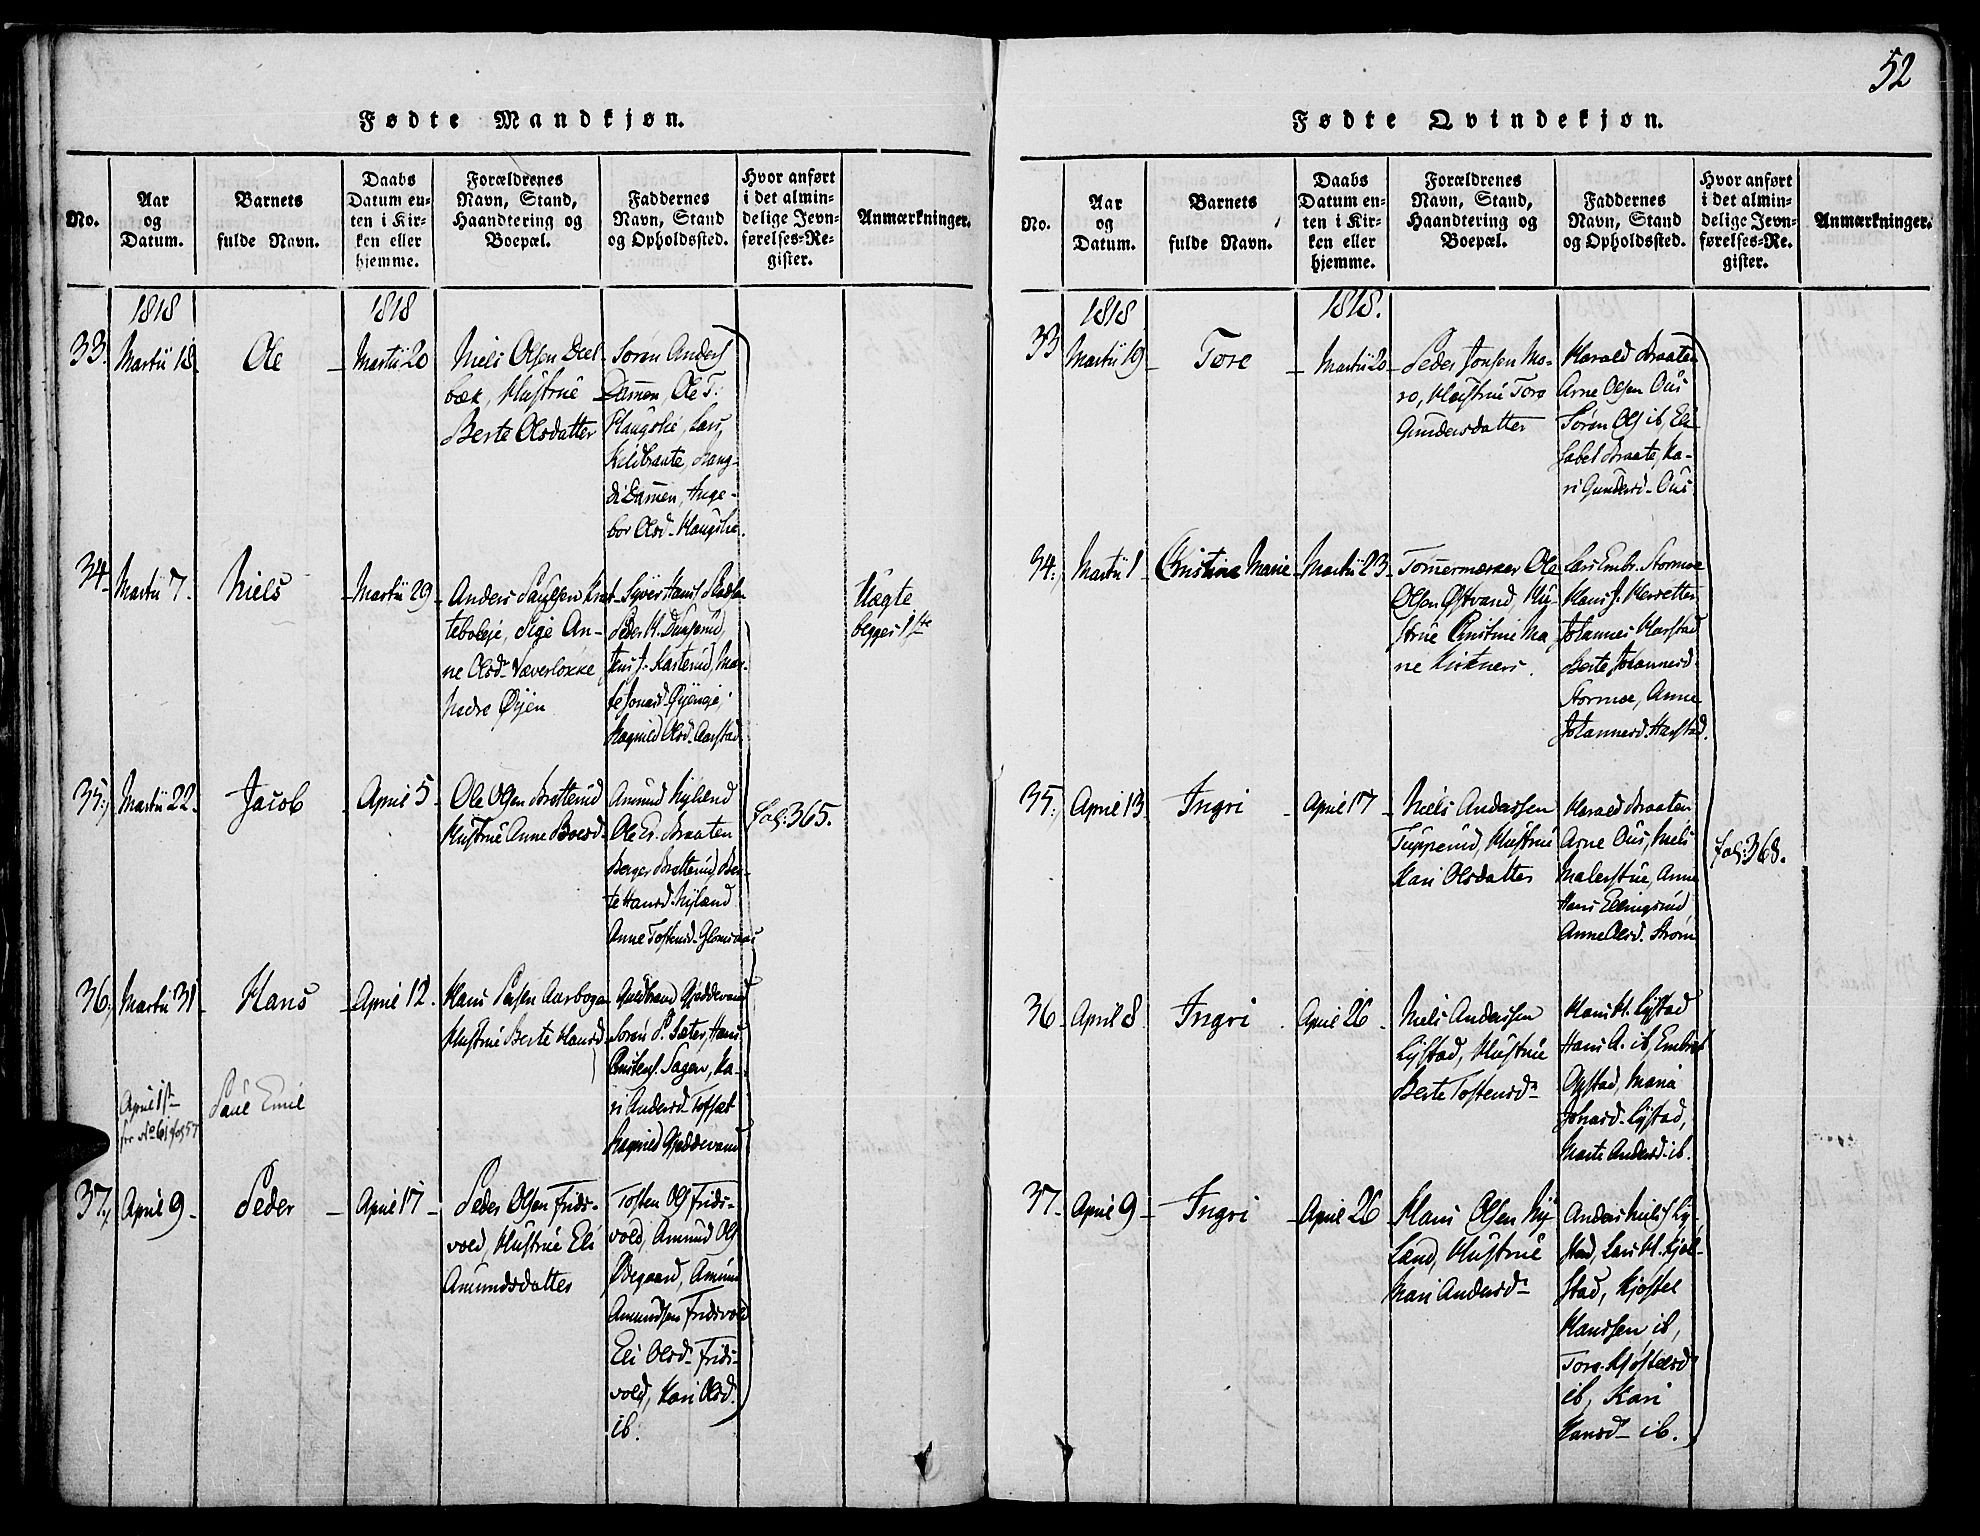 52
Fødte Mandkjøn.
No.
Aar
og
Datum.
Barnets
fulde Navn.
Daabs
Datum en-
ten i Kir-
ken eller
hjemme.
Forældrenes
Navn, Stand,
Haandtering og
Boepæl.
Faddernes
Navn, Stand
og Opholdssted.
Hvor anført
i det almin-
delige Jevn-
førelses-Re-
gister.
Anmærkninger.
1818
1818
33.
Martii 18.
Ole
Martii 20
Niels Olsen
bæk, Hustrue
Berte Olsdatter
Søren Anders
Damen, Ole T:
Haugslie, Lars
Kildbraate,
di Damen, Inge-
bor Olsd. Haugslie.
34.
Martii 7.
Niels
Martii 29
Anders Paulsen
teboleje, Pige An-
ne Olsd.
nedre Øyen
Syver Hans
Peder H.
Jens J.
te Jonasd. Øyenge,
Ragnild Olsd. Aarstad
Uægte
begges 1ste
35.
Martii 22.
Jacob
April 5
Ole Olsen Bratterud
Hustrue Anne Boersd.
Amund Nylænd
Ole Er. Braaten
Berger Bratterud, Ber-
te Hansd. Nylænd
Anne Tostensd. Glomsaas
fol: 365.
36.
Martii 31
Hans
April 12.
Hans Persen Aarbogen
Hustrue Berte Hansd.
Guldbrand Gjeddevand
Søren P. Sæter, Hans
Cristens. Sagen, Ka-
ri Andersd. Tofsæt
Ragnild Gjeddevand
April 1ste
for No 61 fol 57
Paul Emil
37.
April 9
Peder
April 17
Peder Olsen Frids-
vold, Hustrue Eli
Amundsdatter
Tosten Ols Frids-
vold, Amund Ols
Ødegaard, Amund
Amundsen Fridsvold
Eli Olsd. Frids-
vold, Kari Olsd.
ib.
Fødte Qvindekjøn.
No.
Aar
og
Datum.
Barnets
fulde Navn.
Daabs
Datum en-
ten i Kir-
ken eller
hjemme.
Forældrenes
Navn, Stand,
Haandtering og
Boepæl.
Faddernes
Navn, Stand
og Opholdssted.
Hvor anført
i det almin-
delige Jevn-
førelses-Re-
gister.
Anmærkninger.
1818
1818.
33
Martii 19
Tore
Martii 20
Peder Jonsen Mo-
ro, Hustrue Toro
Gundersdatter
Harald Braaten
Arne Olsen Ous
Søren Ols ib, Eli-
sabet Braate, Ka-
ri Gundersd. Ous
34.
Martii 1
Christine Marie
Martii 23
Tømmermaaer Ole
Olsen Østvand, Hu-
strue Cristine Ma
ne Kirkners.
Lars Embr. Stormoe
Hans J. Herretten
Johannes Harstad
Berte Johannesd.
Stormoe, Anne
Johannesd. Harstad.
35.
April 13
Ingri
April 17
Niels Anderssen
Tupperud, Hustrue
Kari Olsdatter
Harald Braaten
Arne Ous, Niels
Malerstue, Anne
Hans Ellingsrud
Anne Olsd. Strøm
fol: 368.
36
April 8
Ingri
April 26
Niels Anderssen
Lystad, Hustrue
Berte Tostensd.
Hans H. Lystad
Hans A. ib, Embret
Opstad, Maria
Johansd. Lystad,
Marte Andersd. ib.
37
April 9
Ingri
April 26
Hans Olsen Ny-
land, Hustrue
Mari Andersd.
Anders Niels Ly-
stad, Lars H. Kjøl-
stad, Kjøstel
Hanssen ib,
Toro Kjøstelsd
ib, Kari
Hansd. ib.